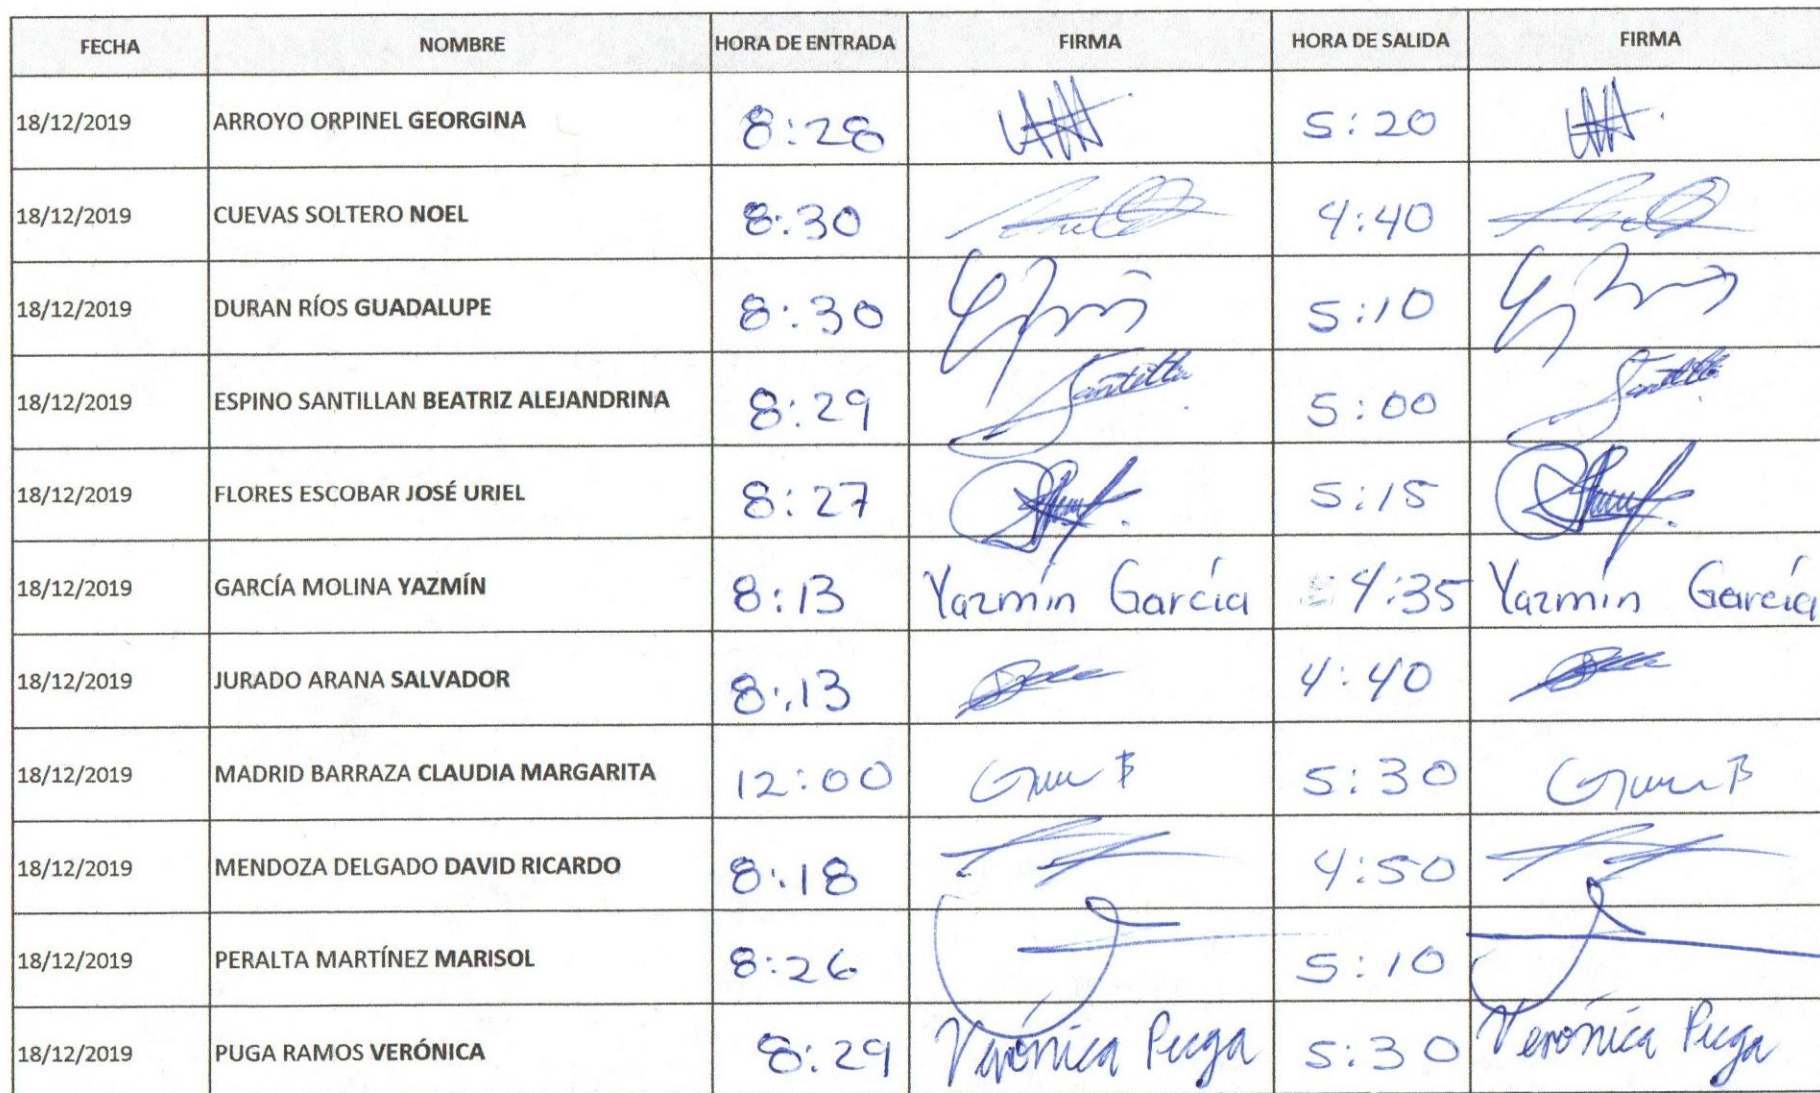 FECHA NOMBRE HORA DE ENTRADA FIRMA HORA DE SALIDA FIRMA
18/12/2019 ARROYO ORPINEL GEORGINA 8:28 5:20
18/12/2019 CUEVAS SOLTERO NOEL 8:30 4:40
18/12/2019 DURAN RÍOS GUADALUPE 8:30 5:10
18/12/2019 ESPINO SANTILLAN BEATRIZ ALEJANDRINA 8:29 5:00
18/12/2019 FLORES ESCOBAR JOSÉ URIEL 8:27 5:15
18/12/2019 GARCÍA MOLINA YAZMÍN 8:13 Yazmín García 4:35 Yazmín García
18/12/2019 JURADO ARANA SALVADOR 8:13 4:40
18/12/2019 MADRID BARRAZA CLAUDIA MARGARITA 12:00 5:30
18/12/2019 MENDOZA DELGADO DAVID RICARDO 8:18 4:50
18/12/2019 PERALTA MARTÍNEZ MARISOL 8:26 5:10
18/12/2019 PUGA RAMOS VERÓNICA 8:29 Verónica Puga 5:30 Verónica Puga